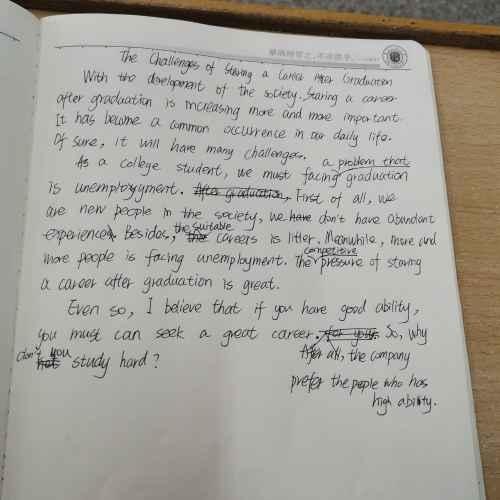 The Challenges of Staring a Career After Graduation
With the development of the society. Staring a career
after graduation is increasing more and more important.
It has become a common occurrence in our daily life.
Of sure, it will have many challenges.
As a college student, we must facing a problem that graduation
is unemployygment. After graduation, First of all, we
are new people in the society, we have don't have abundant
experiences. Besides, the suitable careers is litter. Meanwhile, more and
more people is facing unemployment. The competitive pressure of staring
a career after graduation is great.
Even so, I believe that if you have good ability,
you must can seek a great career. After all, the company
prefer the people who has
high ability.
So, why
don't you study hard?